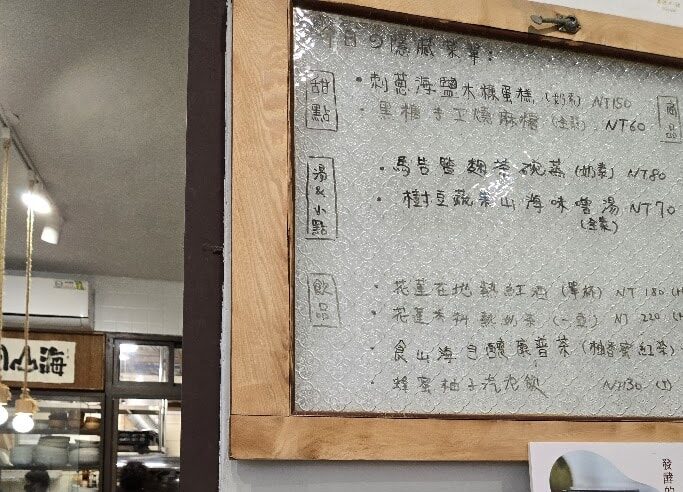 今日の隱藏菜單:
甜點
• 刺蔥海鹽木糠蛋糕 (奶素) NT150
• 黑糖手工燒麻糬 (全素). NT60
商品
湯&小點
• 馬告鹽麴茶碗蒸 (奶素) NT80
• 樹豆蔬菜山海味噌湯 NT70
(全素)
飲品
• 花蓮在地熱紅酒 (單杯) NT 180 (H
• 花蓮 (一壺) NT 220 (H
• 食山海自釀康普茶 (柚香蜜紅茶)
• 蜂蜜柚子汽水飲 NT130 (I)
山海
發酵的